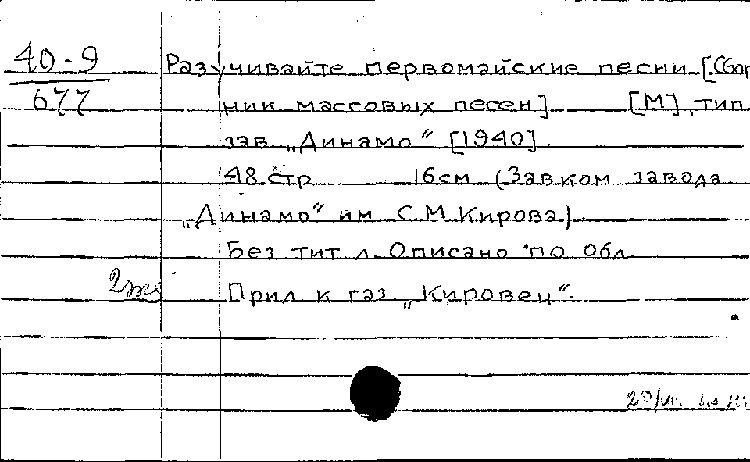 40-9
677
Разучивайте первомайские песни [Сбор
ник массовых песен] [М], тип.
зав. „Динамо“ [1940]
48 стр 16 см (Завком завода
„Динамо“ им С.М. Кирова)
Без тит л. Описано по обл
2
Прил к газ „Кировец“.